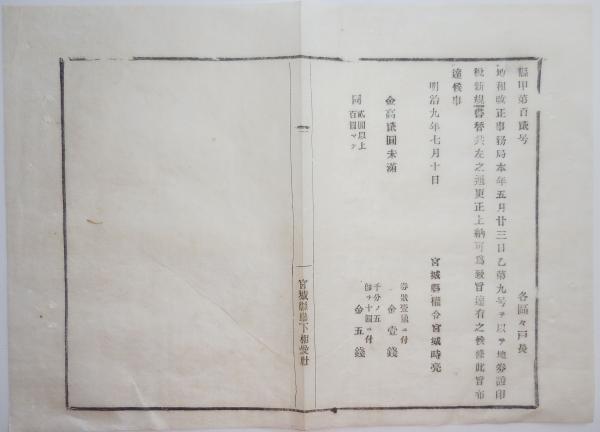 縣甲第百貳号
各區々戸長
地租改正事務局本年五月廿三日乙第九号ヲ以テ地券證印
税新規書替共左之通更正上納可為致旨達有之候條此旨布
達候事
明治九年七月十日
宮城縣權令宮城時亮
金高貳圓未滿
券狀壹通ニ付
金壹錢
同
貳圓以上
百圓マテ
千分ノ五
即チ十圓ニ付
金五錢
二
宮城縣縣下相愛社